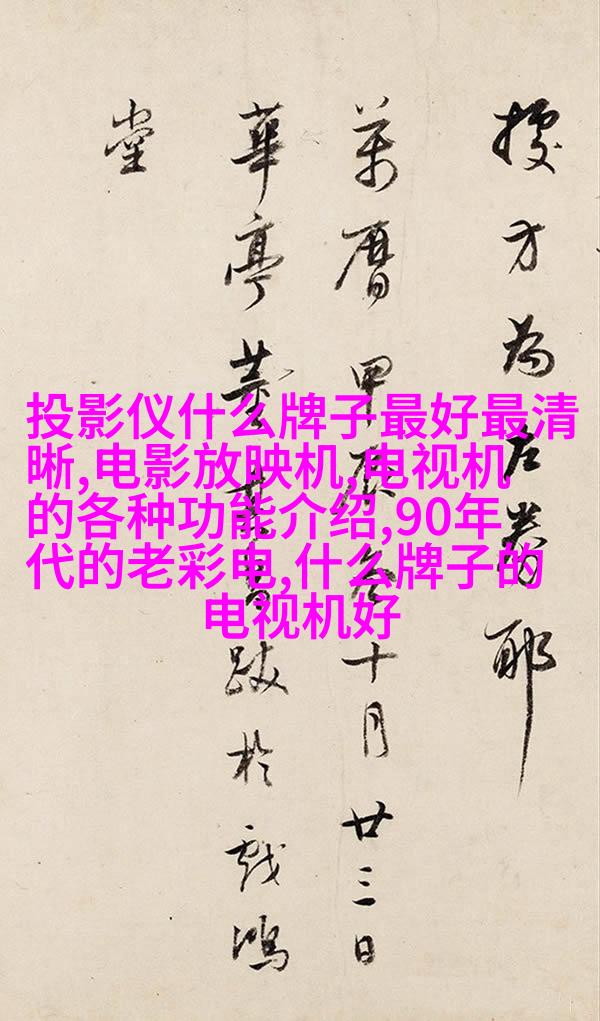 方為左券耶
萬曆甲辰冬十月廿三日
華亭董其昌跋於戲鴻
堂
投影仪什么牌子最好最清
晰,电影放映机,电视机
的各种功能介绍,90年
代的老彩电,什么牌子的
电视机好